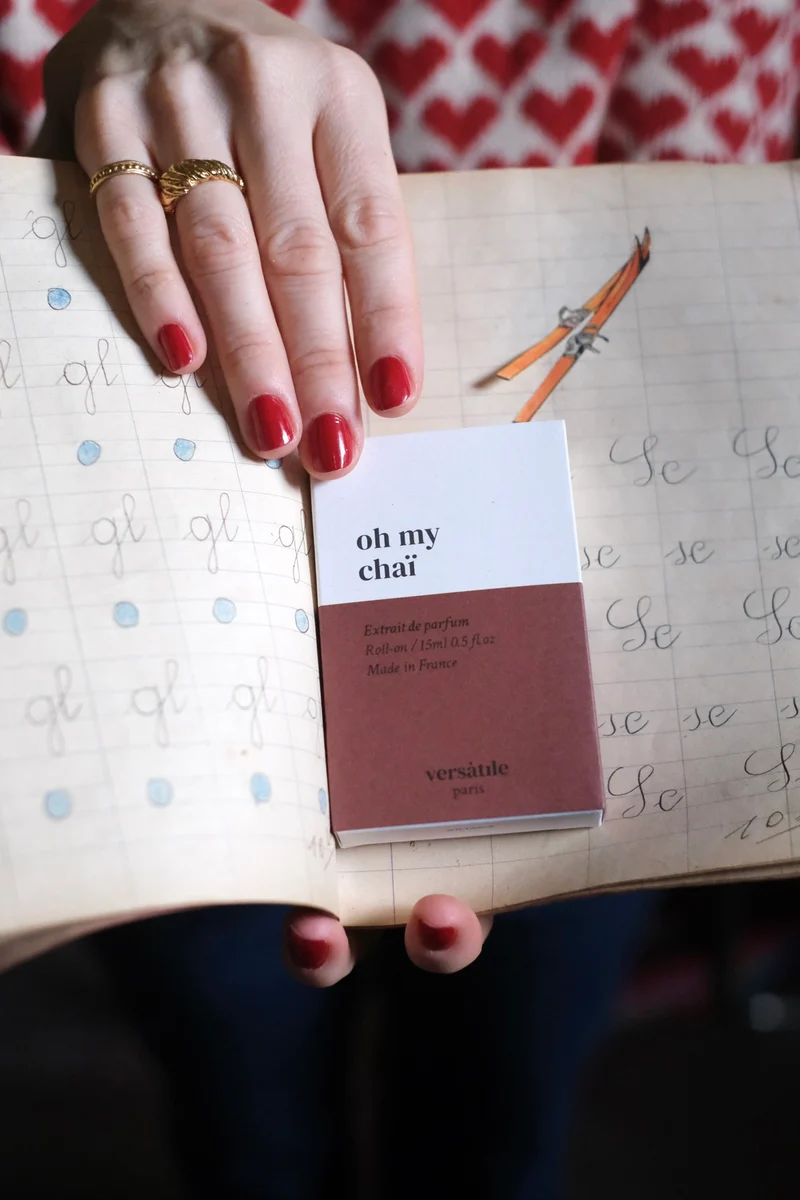 gl
gl gl
gl gl gl
gl gl gl
oh my
chaï
Extrait de parfum
Roll-on / 15ml 0.5 fl.oz
Made in France
versatile
paris
Se Se
se se se
Se Se
se se s
Se S
10